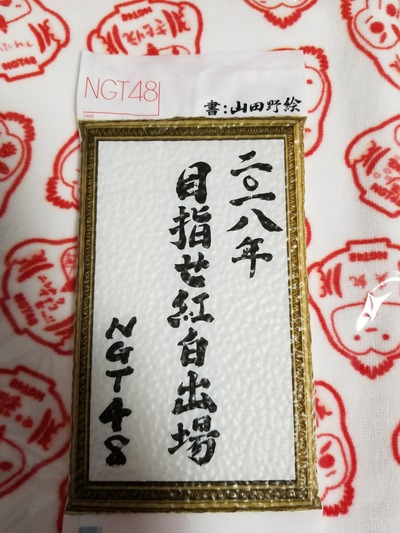 NGT48
書:山田野絵
二〇一八年
目指せ紅白出場
NGT48